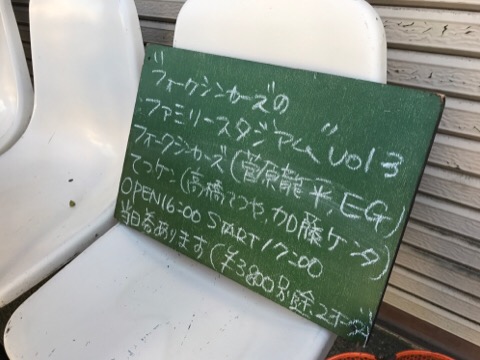 "フォークシンガーズの
ファミリースタジアム"vol3
フォークシンガーズ(菅原龍平,EG)
てつケン(高橋てつや,加藤ケンタ)
OPEN16=00 START17=00
当日券あります(¥3,800別途2オーダー)